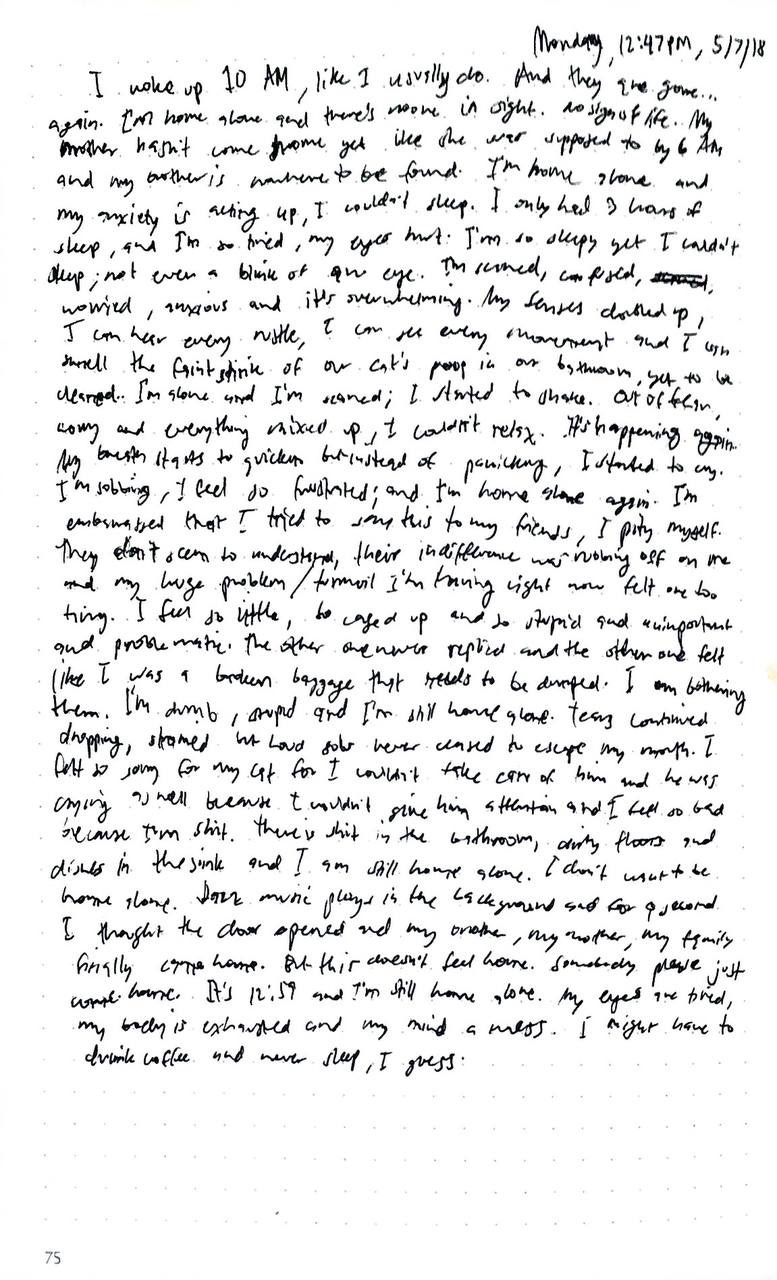 Monday, 12:47PM, 5/7/18
I woke up 10 AM, like I usually do. And they are gone...
again. I'm home alone and there's noone in sight. No sign of life. My
mother hasn't come home yet like she was supposed to by 6 AM
and my brother is nowhere to be found. I'm home alone and
my anxiety is acting up, I couldn't sleep. I only had 3 hours of
sleep, and I'm so tired, my eyes hurt. I'm so sleepy yet I couldn't
sleep; not even a blink of an eye. I'm scared, confused,
worried, anxious and it's overwhelming. My senses doubled up,
I can hear every rustle, I can see every movement and I can
smell the faint stink of our cat's poop in our bathroom, yet to be
cleaned. I'm alone and I'm scared; I started to shake. Out of fear,
worry and everything mixed up, I couldn't relax. It's happening again.
My breath starts to quicken but instead of panicking, I started to cry.
I'm sobbing, I feel so frustrated; and I'm home alone again. I'm
embarrassed that I tried to say this to my friends, I pity myself.
They don't seem to understand, their indifference was rubbing off on me
and my huge problem/turmoil I'm having right now felt one too
tiny. I feel so little, so caged up and so stupid and unimportant
and problematic. The other one never replied and the other one felt
like I was a broken baggage that needs to be dumped. I am bothering
them. I'm dumb, stupid and I'm still home alone. Tears continued
dropping, stained but loud sobs never ceased to escape my mouth. I
felt so sorry for my cat for I couldn't take care of him and he was
crying as well because I couldn't give him attention and I feel so bad
because I'm shit. There is shit in the bathroom, dirty floors and
dishes in the sink and I am still home alone. I don't want to be
home alone. Jazz music plays in the background and for a second
I thought the door opened and my brother, my mother, my family
finally came home. But this doesn't feel home. Somebody please just
come home. It's 12:59 and I'm still home alone. My eyes are tired,
my body is exhausted and my mind a mess. I might have to
drink coffee and never sleep, I guess.
75